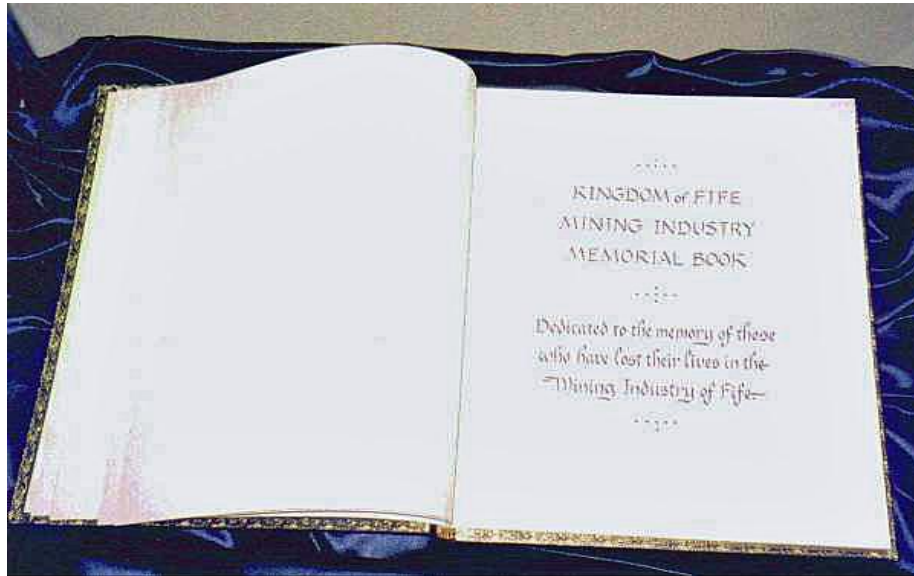 KINGDOM of FIFE
MINING INDUSTRY
MEMORIAL BOOK
Dedicated to the memory of those
who have lost their lives in the
Mining Industry of Fife